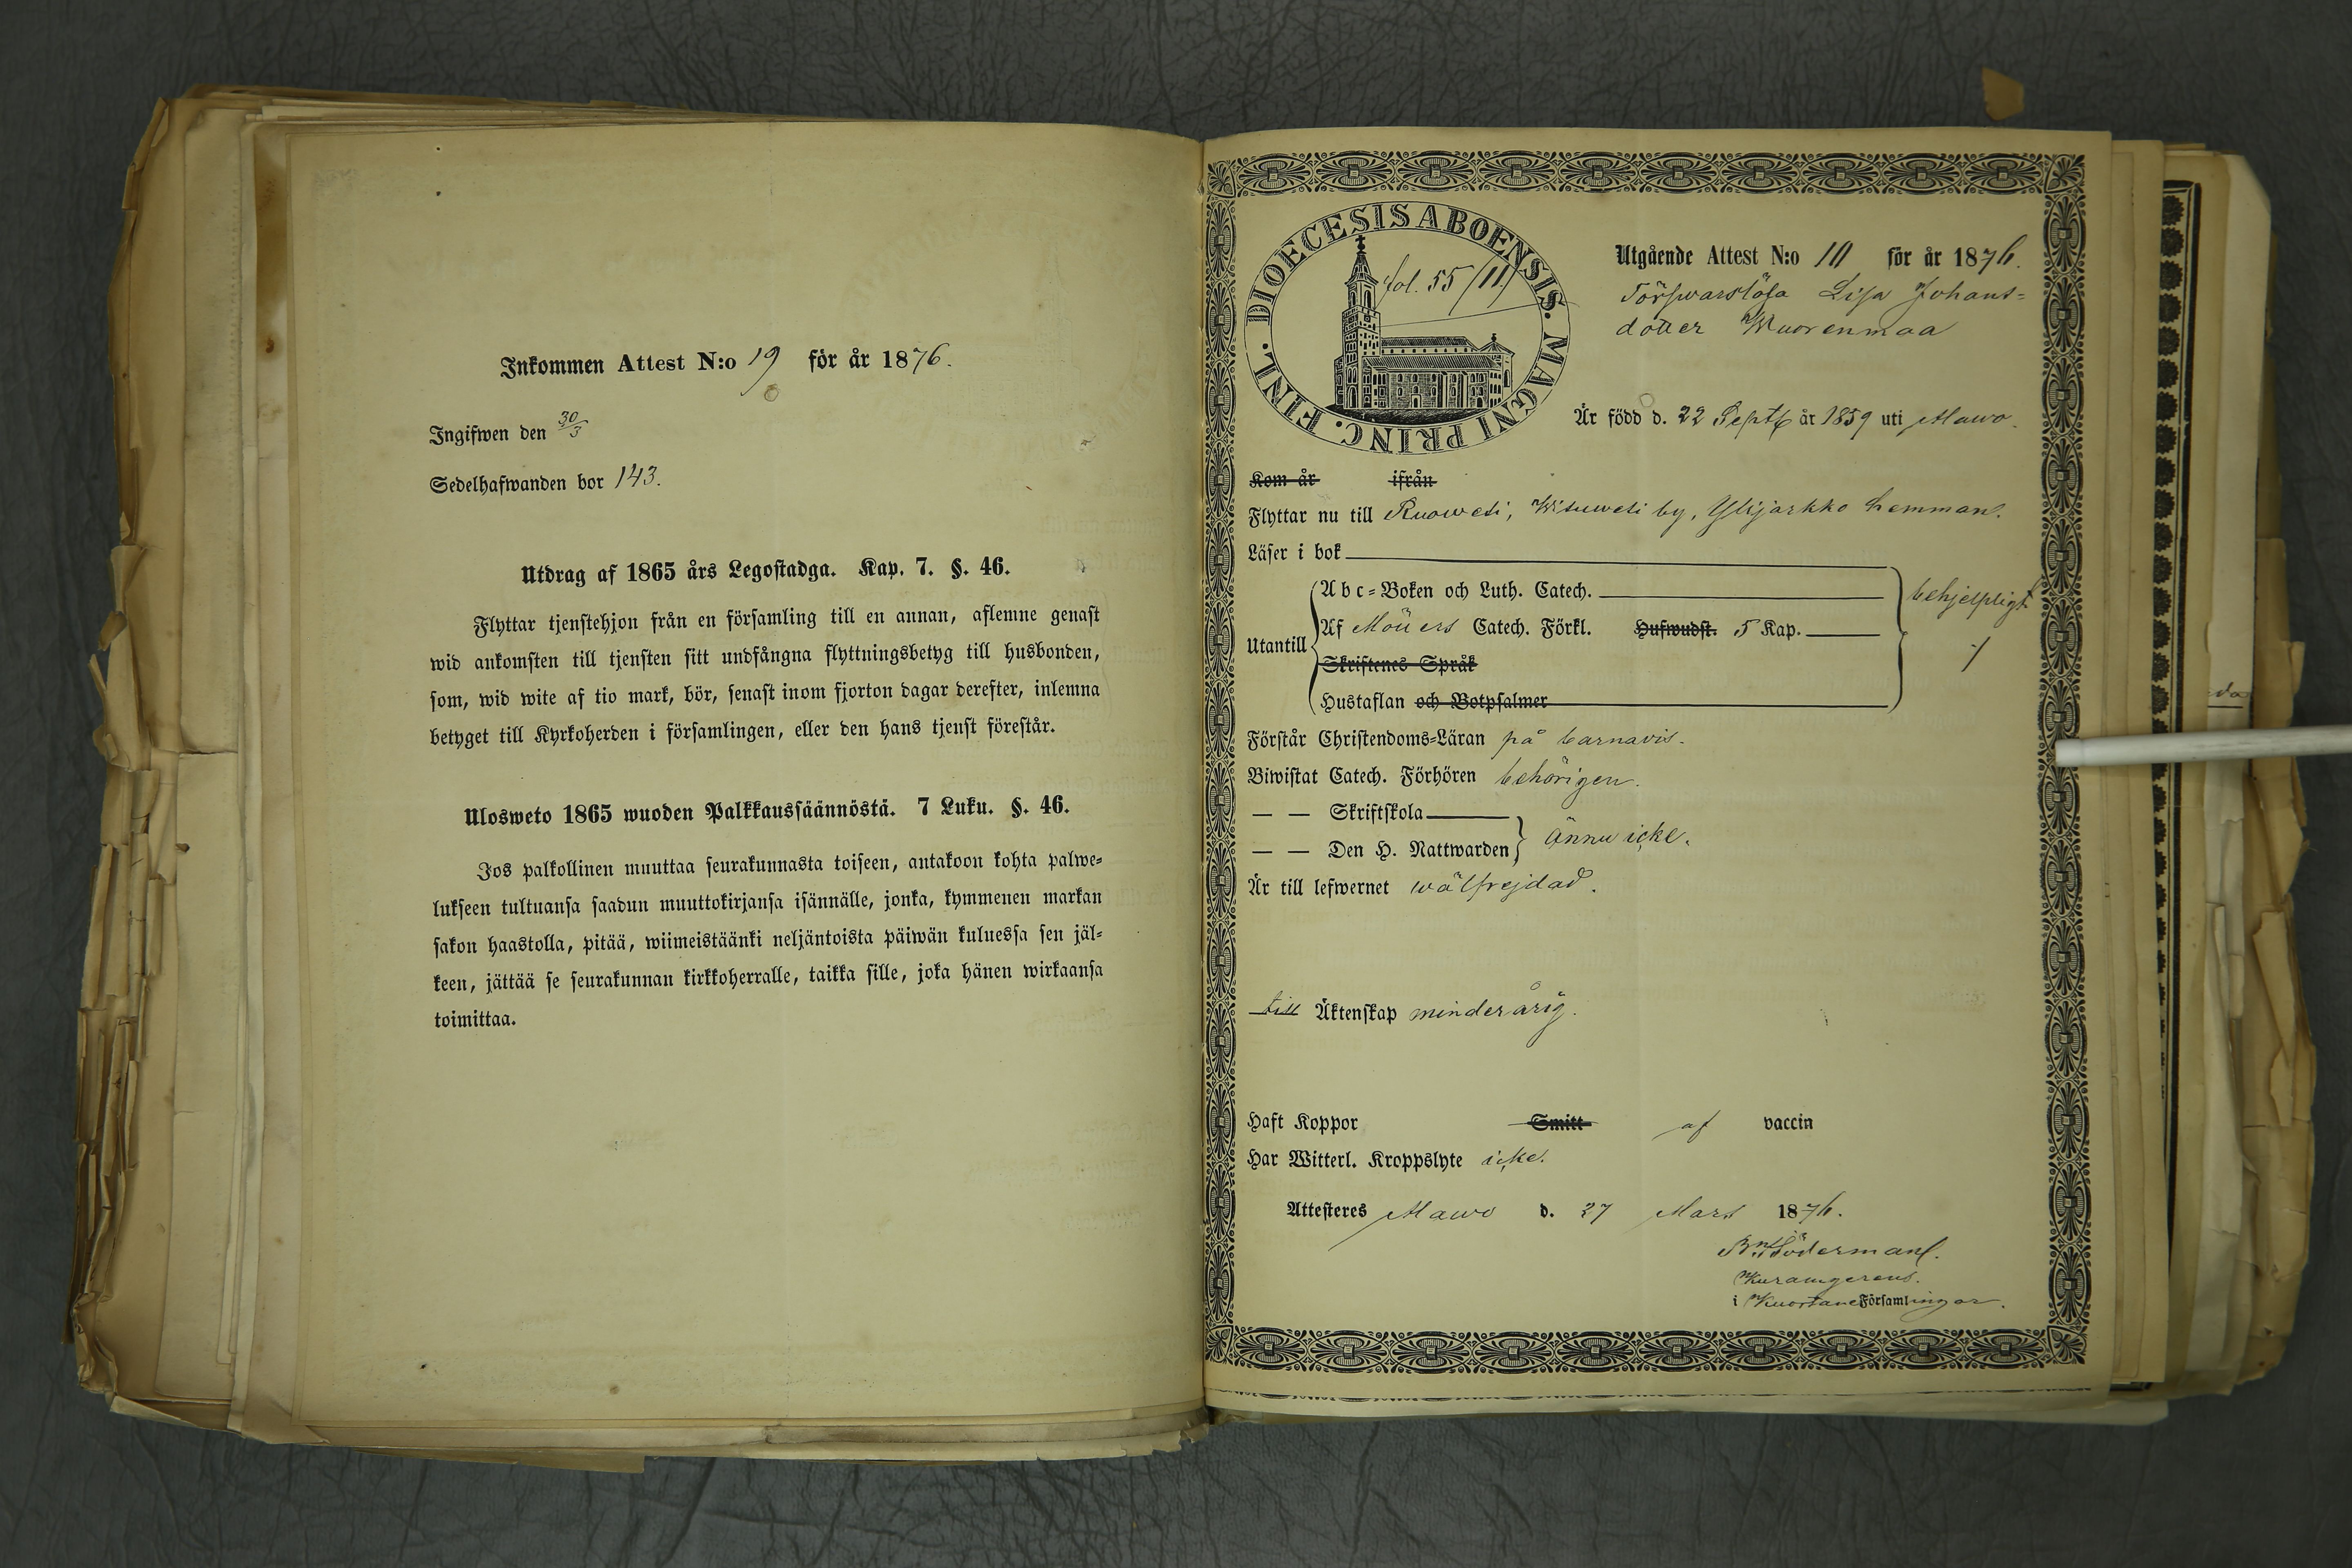 Inkommen Attest N:o 19 för år 1876.
Ingifwen den 30/3
Sedelhafwanden bor 143.
Utdrag af 1865 års Legostadga. Kap. 7. §. 46.
Flyttar tjenstehjon från en församling till en annan, aflemne genast
wid ankomsten till tjensten sitt undfångna flyttningsbetyg till husbonden,
som, wid wite af tio mark, bör, senast inom fjorton dagar derefter, inlemna
betyget till Kyrkoherden i församlingen, eller den hans tjenst förestår.
Ulosweto 1865 wuoden Palkkaussäännöstä. 7 Luku. §. 46.
Jos palkollinen muuttaa seurakunnasta toiseen, antakoon kohta palwe=
lukseen tultuansa saadun muuttokirjansa isännälle, jonka, kymmenen markan
sakon haastolla, pitää, wiimeistäänki neljäntoista päiwän kuluessa sen jäl=
keen, jättää se seurakunnan kirkkoherralle, taikka sille, joka hänen wirkaansa
toimittaa.
DIOECESIS ABOENSIS. MAGNI PRINC. FINL.
fol. 55/11
Utgående Attest N:o 10 för år 1876.
Försvarslösa Lisa Johans=
dotter Wuorenmaa
Är född d. 22 Septb år 1859 uti Alawo.
Kom år ifrån
Flyttar nu till Ruowesi, Wisuwesi by, Ylijarkko hemman.
Läser i bok
Abc=Boken och Luth. Catech. behjelpligt
Utantill Af Möllers Catech. Förkl. Hufwudst. 5 Kap.
Skriftenes Språk
Hustaflan och Botpsalmer
Förstår Christendoms=Läran på barnavis.
Biwistat Catech. Förhören behörigen.
— — Skriftskola
— — Den H. Nattwarden ännu icke.
Är till lefwernet wälfrejdad.
till Äktenskap minderårig.
Haft Koppor Smitt af vaccin
Har Witterl. Kroppslyte icke.
Attesteres Alawo d. 27 Mars 1876.
Södermanl.
i Kuortane Församlingar.